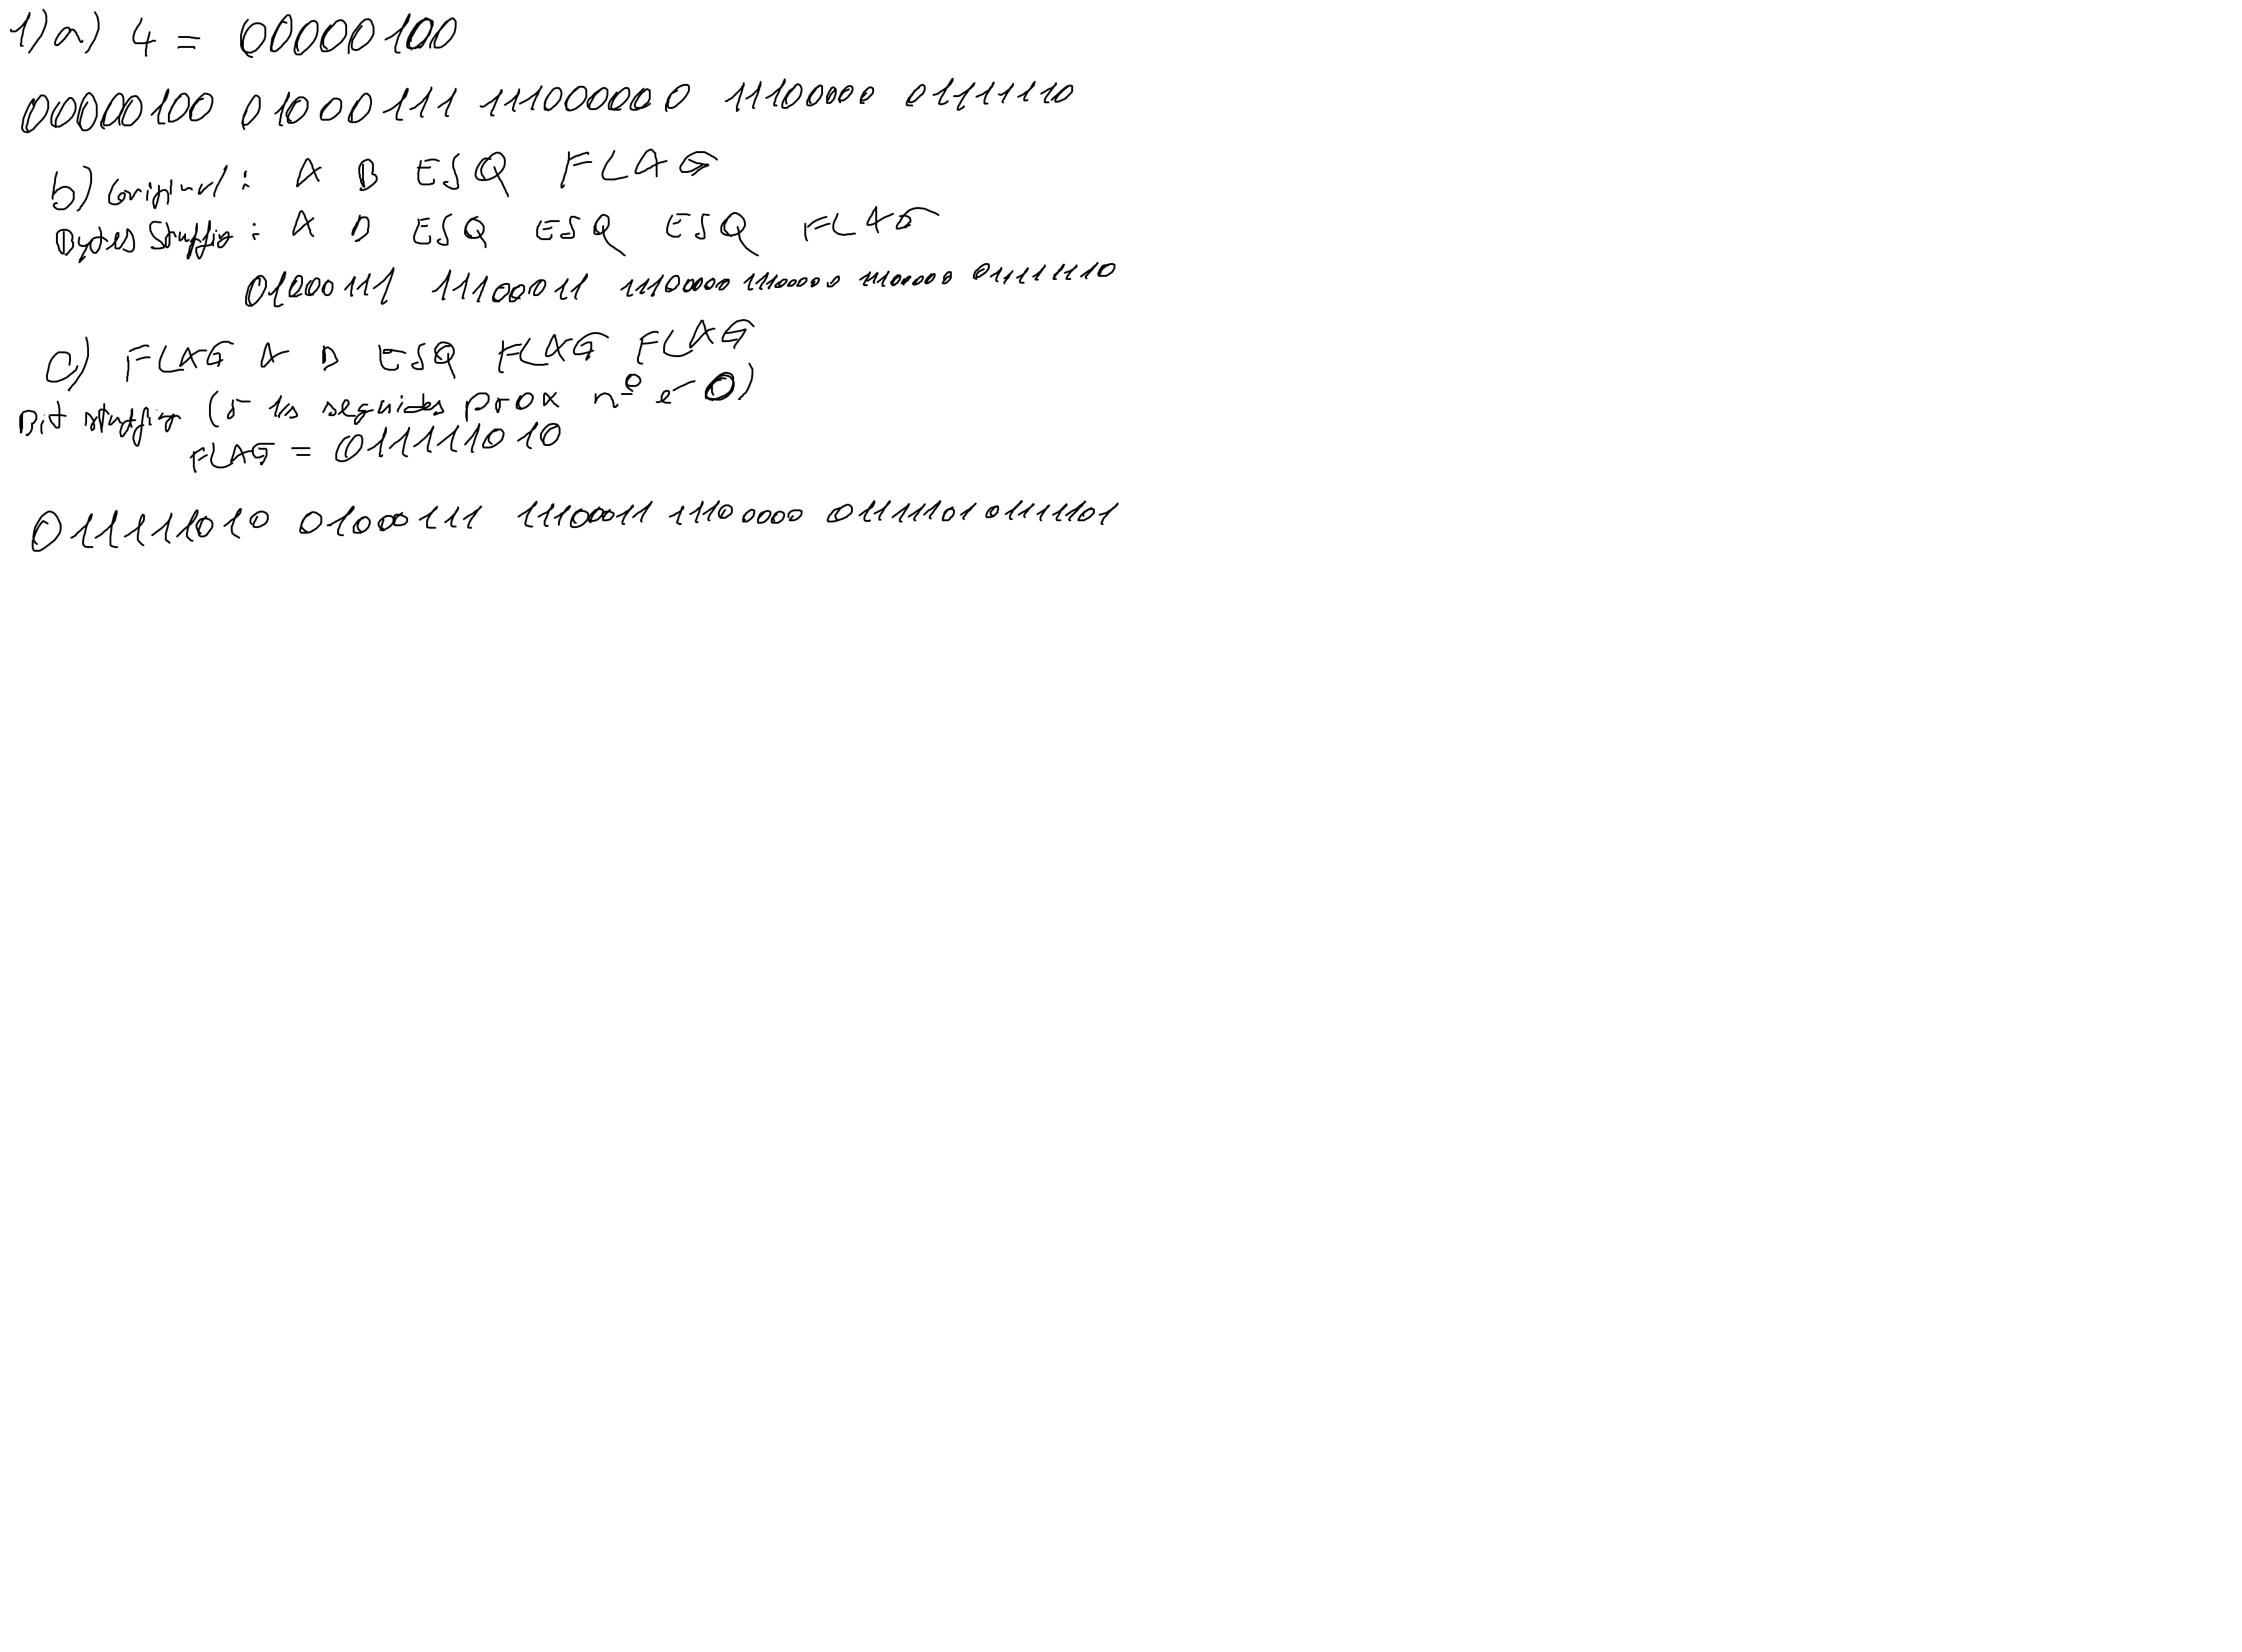 1) a) 4 = 00000100
00000100 01000111 111000000 11100000 01111110
b) original: A B ESQ FLAG
Bytes Stuffig: A B ESQ ESQ ESQ FLAG
01000111 11100011 11100000 11100000 11100000 01111110
c) FLAG A B ESQ FLAG FLAG
Bit stuffig (5 1s seguides prox nº e 0)
FLAG = 011111010
011111010 01000111 11100011 11100000 011111010 01111101